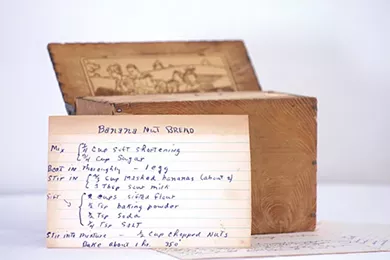 Banana Nut Bread
Mix { Cup soft shortening
Cup Sugar
Beat in thoroughly - 1 egg
Stir in { Cup Mashed bananas (about
Tbsp sour milk
Sift { Cups sifted flour
Tsp baking powder
Tsp Soda
Tsp Salt
Stir into mixture - ½ Cup Chopped Nuts
Bake about 1 hr. 350°